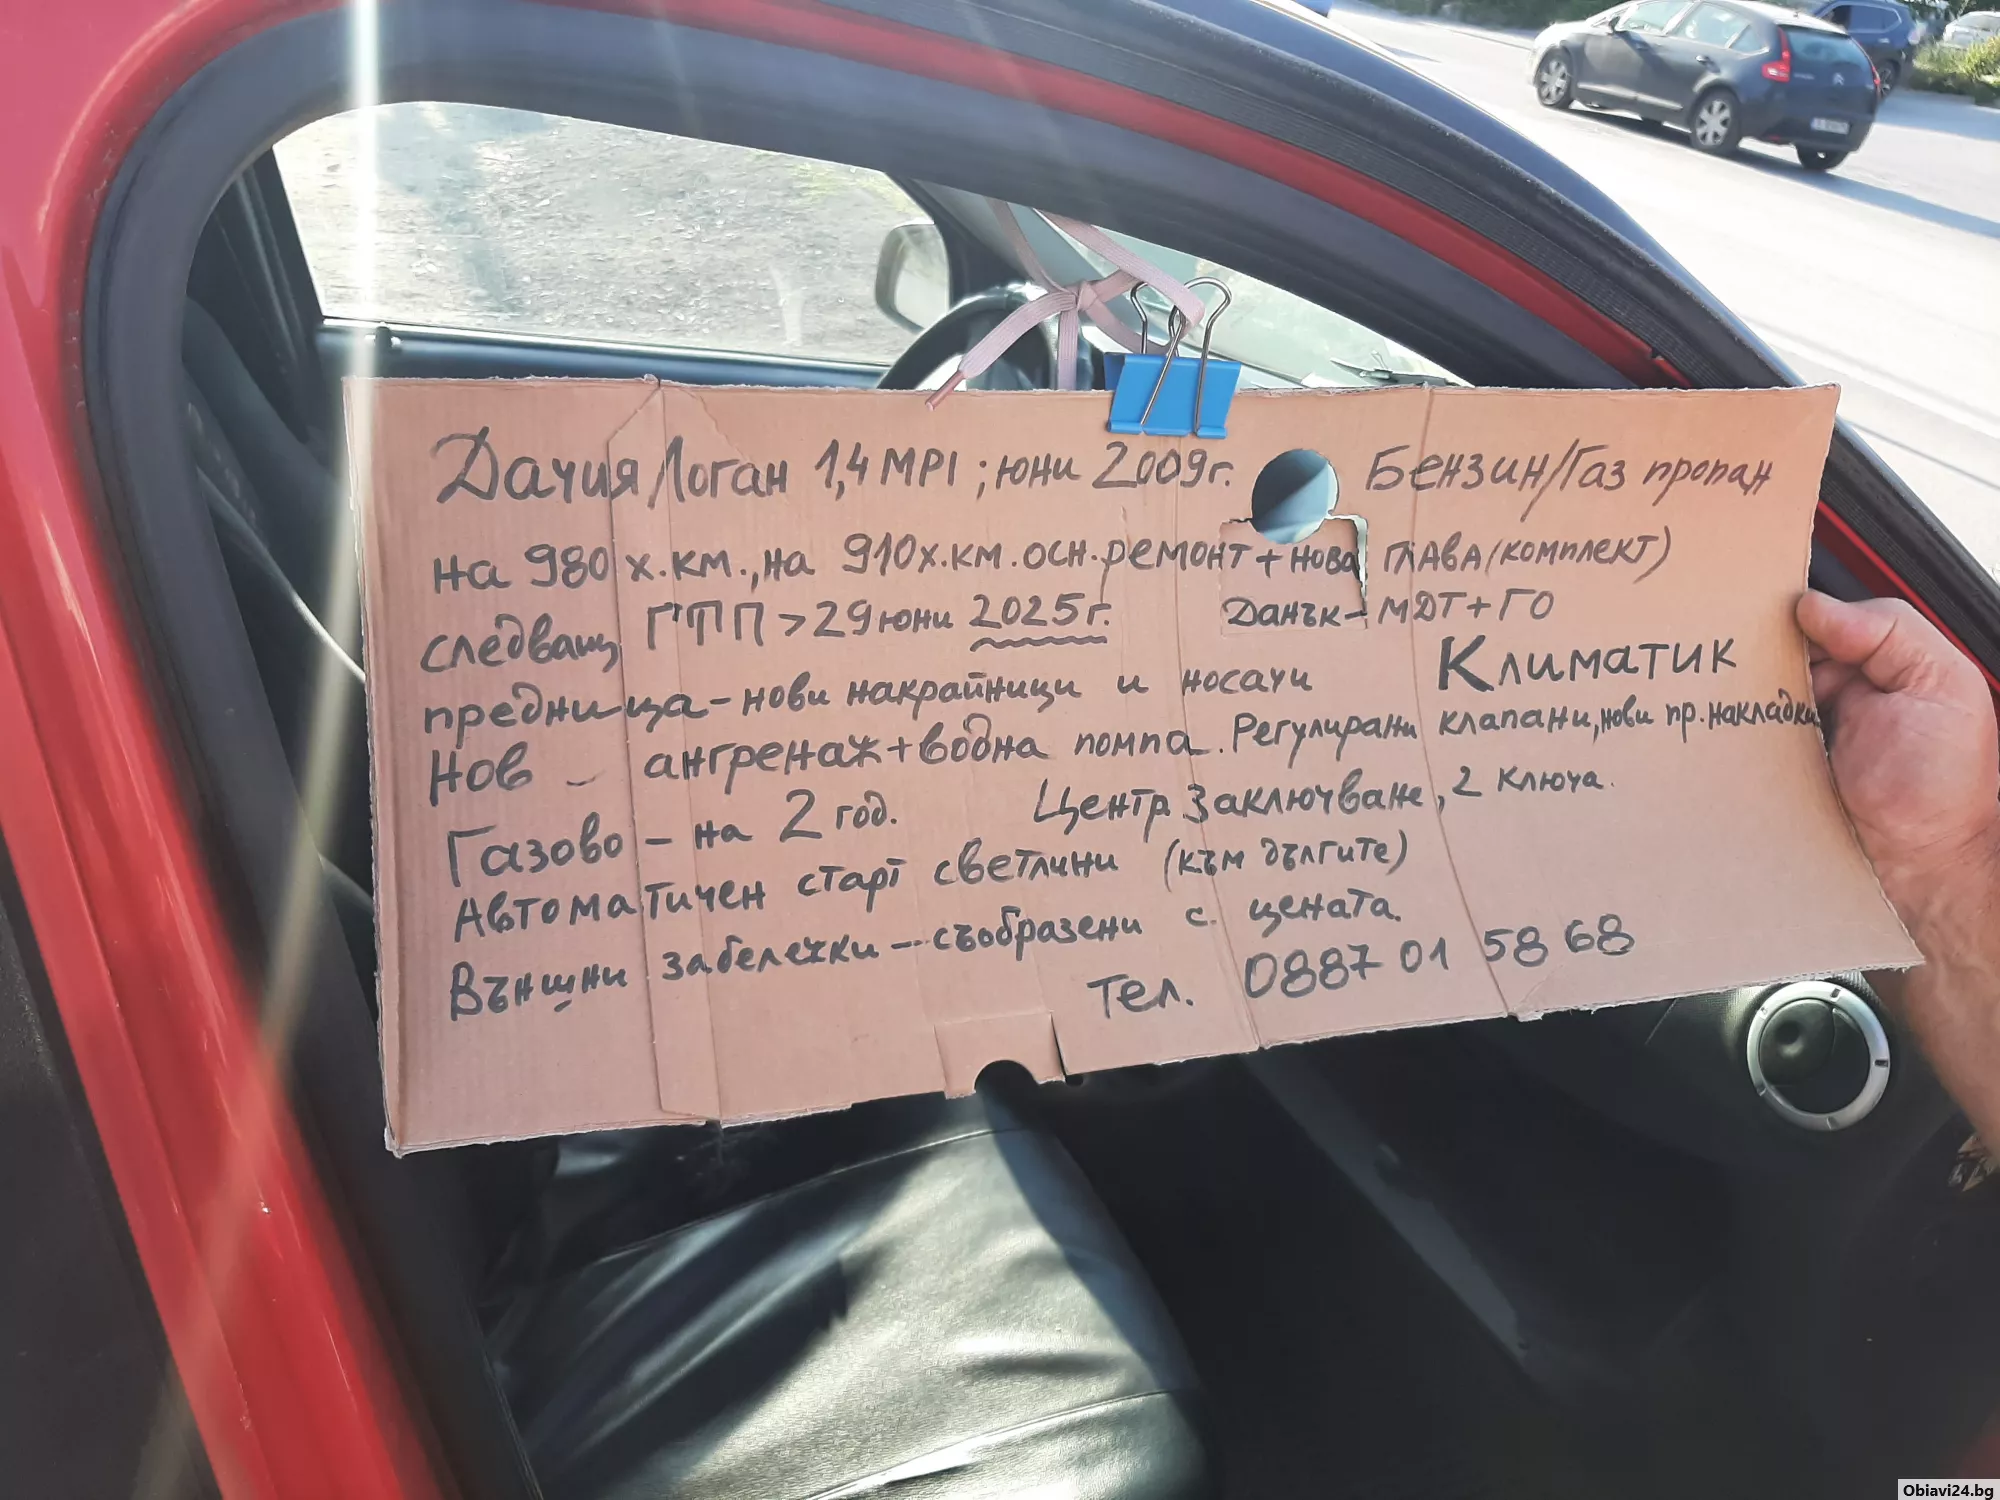 Дачия/Логан 1,4 MPI ; юни 2009г. Бензин/Газ пропан
на 980 х.км., на 910х.км. осн. ремонт + нова ГлАВА (комплект)
следващ ГТП > 29 юни 2025г. Данък - МДТ + ГО
предница - нови накрайници и носачи Климатик
Нов - ангренаж + водна помпа. Регулирани клапани, нови пр. накладки
Газово - на 2 год. Центр. Заключване, 2 ключа.
Автоматичен старт светлини (към дългите)
Външни забележки - съобразени с цената.
Тел. 0887 01 58 68
Obiavi24.bg